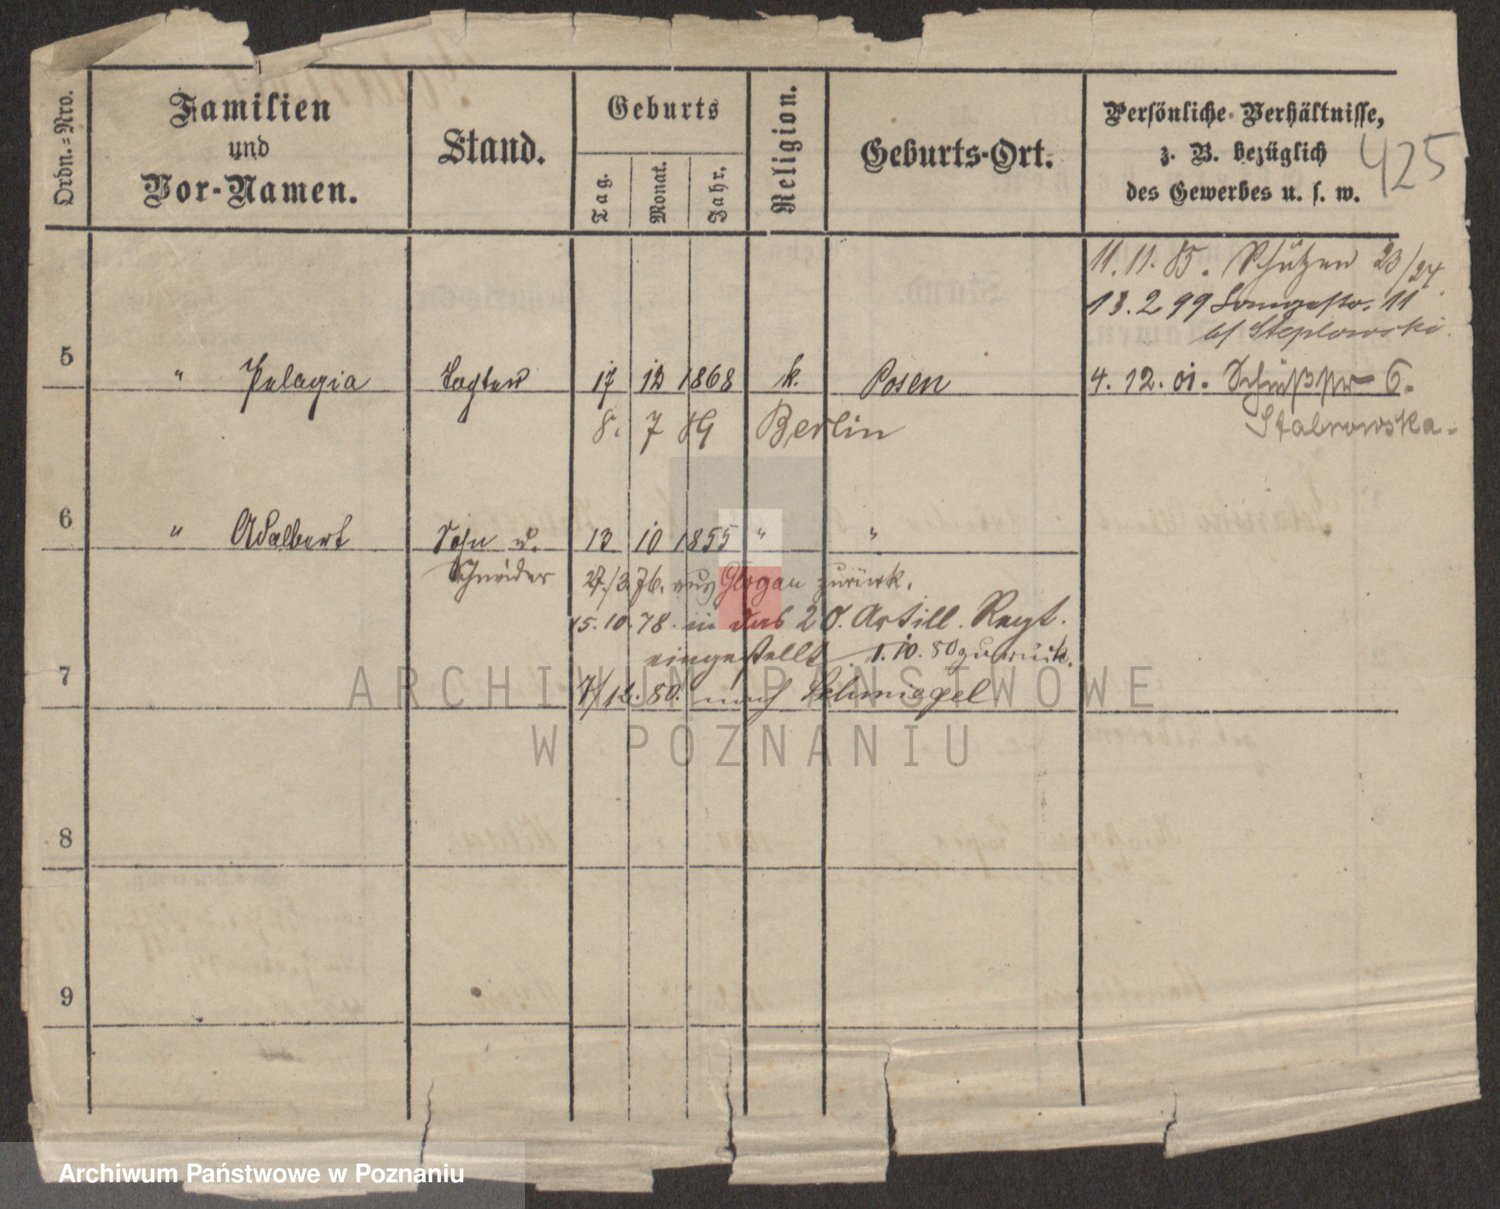 Ordn.-Nro.
Familien
und
Vor-Namen.
Stand.
Geburts
Tag.
Monat.
Jahr.
Religion.
Geburts-Ort.
Persönliche Verhältnisse,
z. B. bezüglich
des Gewerbes u. s. w.
425
11. 11. 85. Schützen 23/24
13. 2 99 Langestr. 11
b/ Steplowski.
5
" Pelagia Tochter 17 12 1868 k. Posen
4. 12. 01. Schießstr 6.
8. 7 89 Berlin
Stabrowska.
6
" Adalbert Sohn u. 13 10 1855 " "
Schneider 27./3. 76. aus Glogau zurück.
15. 10. 78. in das 20. Artill. Regt.
eingestellt 1. 10. 80 zurück.
7
7/12. 80. nach Schmiegel
8
9
ARCHIWUM PAŃSTWOWE
W POZNANIU
Archiwum Państwowe w Poznaniu